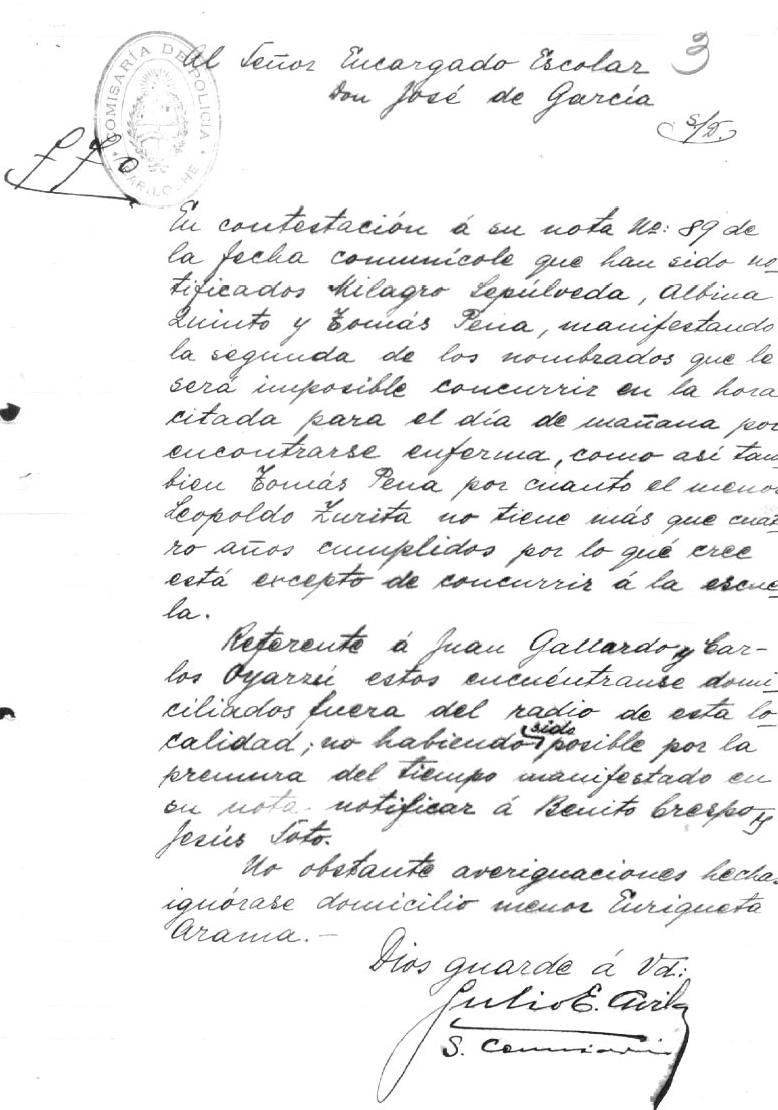 Al Señor Encargado Escolar
3
Don José de García
S/D.
COMISARÍA DE POLICIA
BARILOCHE
En contestación á su nota Nº: 89 de
la fecha comunícole que han sido no-
tificados Milagro Sepúlveda, Albina
Quinto y Tomás Pena, manifestando
la segunda de los nombrados que le
será imposible concurrir en la hora
citada para el día de mañana por
encontrarse enferma, como así tam
bien Tomás Pena por cuanto el menor
Leopoldo Zurita no tiene más que cuat
ro años cumplidos por lo qué cree
está excepto de concurrir á la escue
la.
Referente á Juan Gallardo y Car-
los Oyarzú estos encuéntranse domi-
ciliados fuera del radio de esta lo-
calidad; no habiendo sido posible por la
premura del tiempo manifestado en
su nota notificar á Benito Crespo y
Jesús Soto.
No obstante averiguaciones hechas
ignórase domicilio menor Enriqueta
Arama.-
Dios guarde á Vd:
Julio E. Avila
S. Comisario